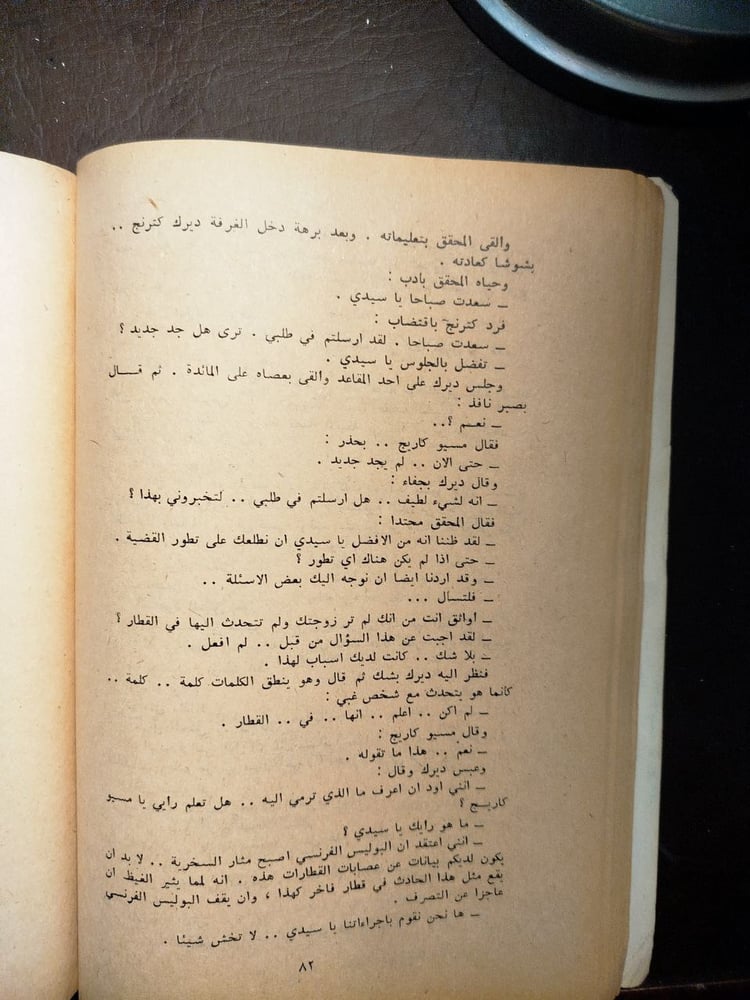 والقى المحقق بتعليماته . وبعد برهة دخل الغرفة ديرك كترنج ..
بشوشا كعادته .
وحياه المحقق بادب :
ــ سعدت صباحا يا سيدي .
فرد كترنج باقتضاب :
ــ سعدت صباحا . لقد ارسلتم في طلبي . ترى هل جد جديد ؟
ــ تفضل بالجلوس يا سيدي .
وجلس ديرك على احد المقاعد والقى بعصاه على المائدة . ثم قـــال
بصبر نافذ :
ــ نعـم ؟..
فقال مسيو كاريج .. بحذر :
ــ حتى الان .. لم يجد جديد .
وقال ديرك بجفاء :
ــ انه لشيء لطيف .. هل ارسلتم في طلبي .. لتخبروني بهذا ؟
فقال المحقق محتدا :
ــ لقد ظننا انه من الافضل يا سيدي ان نطلعك على تطور القضية .
ــ حتى اذا لم يكن هناك اي تطور ؟
ــ وقد اردنا ايضا ان نوجه اليك بعض الاسئلة ..
ــ فلتسال ...
ــ اواثق انت من انك لم تر زوجتك ولم تتحدث اليها في القطار ؟
ــ لقد اجبت عن هذا السؤال من قبل .. لم افعل .
ــ بلا شك .. كانت لديك اسباب لهذا .
فنظر اليه ديرك بشك ثم قال وهو ينطق الكلمات كلمة .. كلمة ..
كانما هو يتحدث مع شخص غبي :
ــ لم اكن .. اعلم .. انها .. في .. القطار .
وقال مسيو كاريج :
ــ نعم .. هذا ما تقوله .
وعبس ديرك وقال :
ــ انني اود ان اعرف ما الذي ترمي اليه .. هل تعلم رايي يا مسيو
كاريــج ؟
ــ ما هو رايك يا سيدي ؟
ــ انني اعتقد ان البوليس الفرنسي اصبح مثار السخرية .. لا بد ان
يكون لديكم بيانات عن عصابات القطارات هذه . انه لمما يثير الغيظ ان
يقع مثل هذا الحادث في قطار فاخر كهذا ، وان يقف البوليس الفرنسي
عاجزا عن التصرف .
ــ ها نحن نقوم باجراءاتنا يا سيدي .. لا تخش شيئا .
٨٢